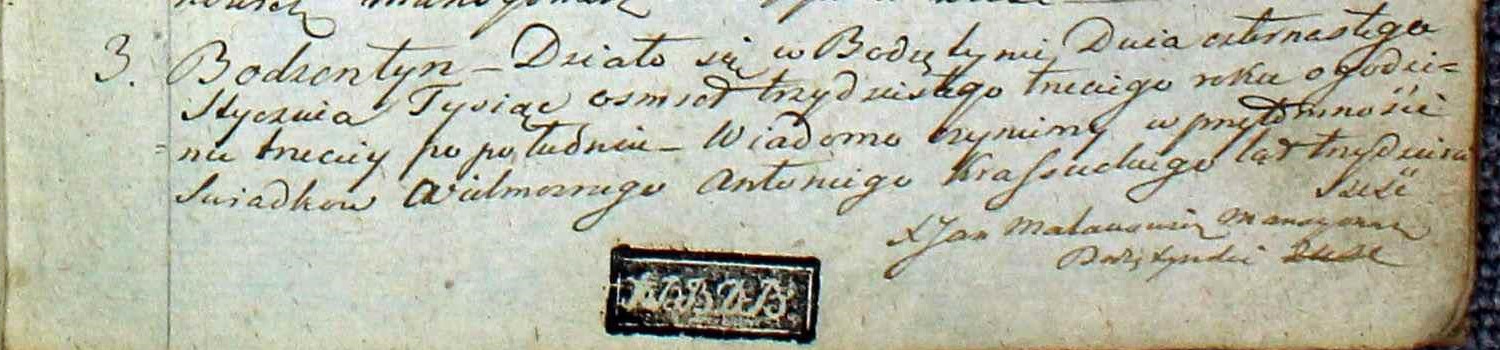 3. Bodzentyn – Działo się w Bodzętynie Dnia czternastego
Stycznia Tysiąc osmset trzydziestego trzeciego roku o godzi=
nie trzeciey po południu – Wiadomo czynimy w przytomności
Swiadkow Wielmoznego Antoniego Krassuckiego lat trzydzieści
sześć
X Jan Mansyonarz
Bodzętynski